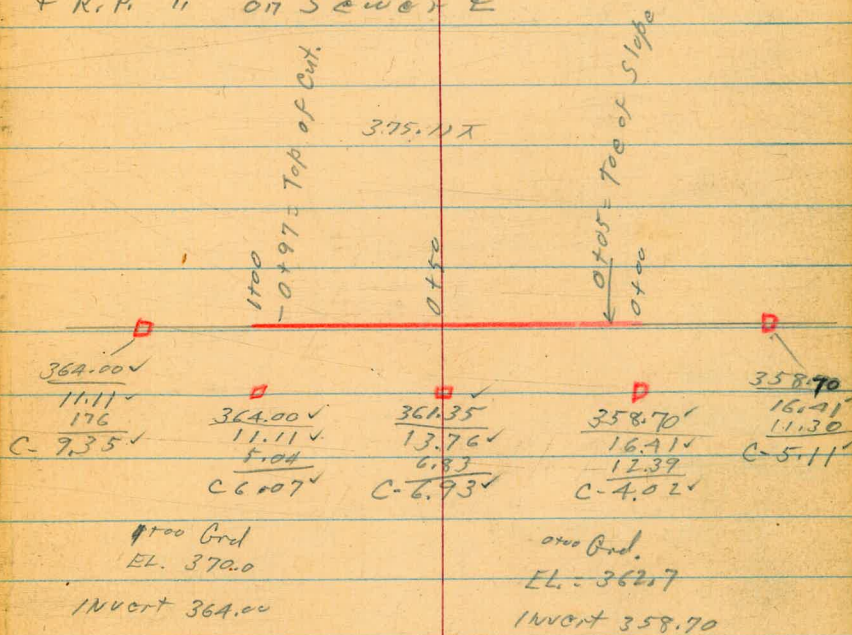 + R.P. 11 on Sewer ℄
0+97 = Top of Cut.
375.11 ⊼
0+05 = Toe of Slope
1+00
0+50
0+00
364.00 ✓
11.11 ✓
176
C- 9.35 ✓
364.00 ✓
11.11 ✓
5.04
C 6.07 ✓
361.35 ✓
13.76 ✓
6.83
C- 6.93 ✓
358.70 ✓
16.41 ✓
12.39
C- 4.02 ✓
358.70
16.41 ✓
11.30
C- 5.11 ✓
1+00 Grd
EL. 370.0
INvert 364.00
0+00 Grd.
EL. = 362.7
INvert 358.70